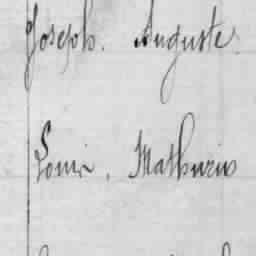 Joseph. Auguste
Louis, Mathurin